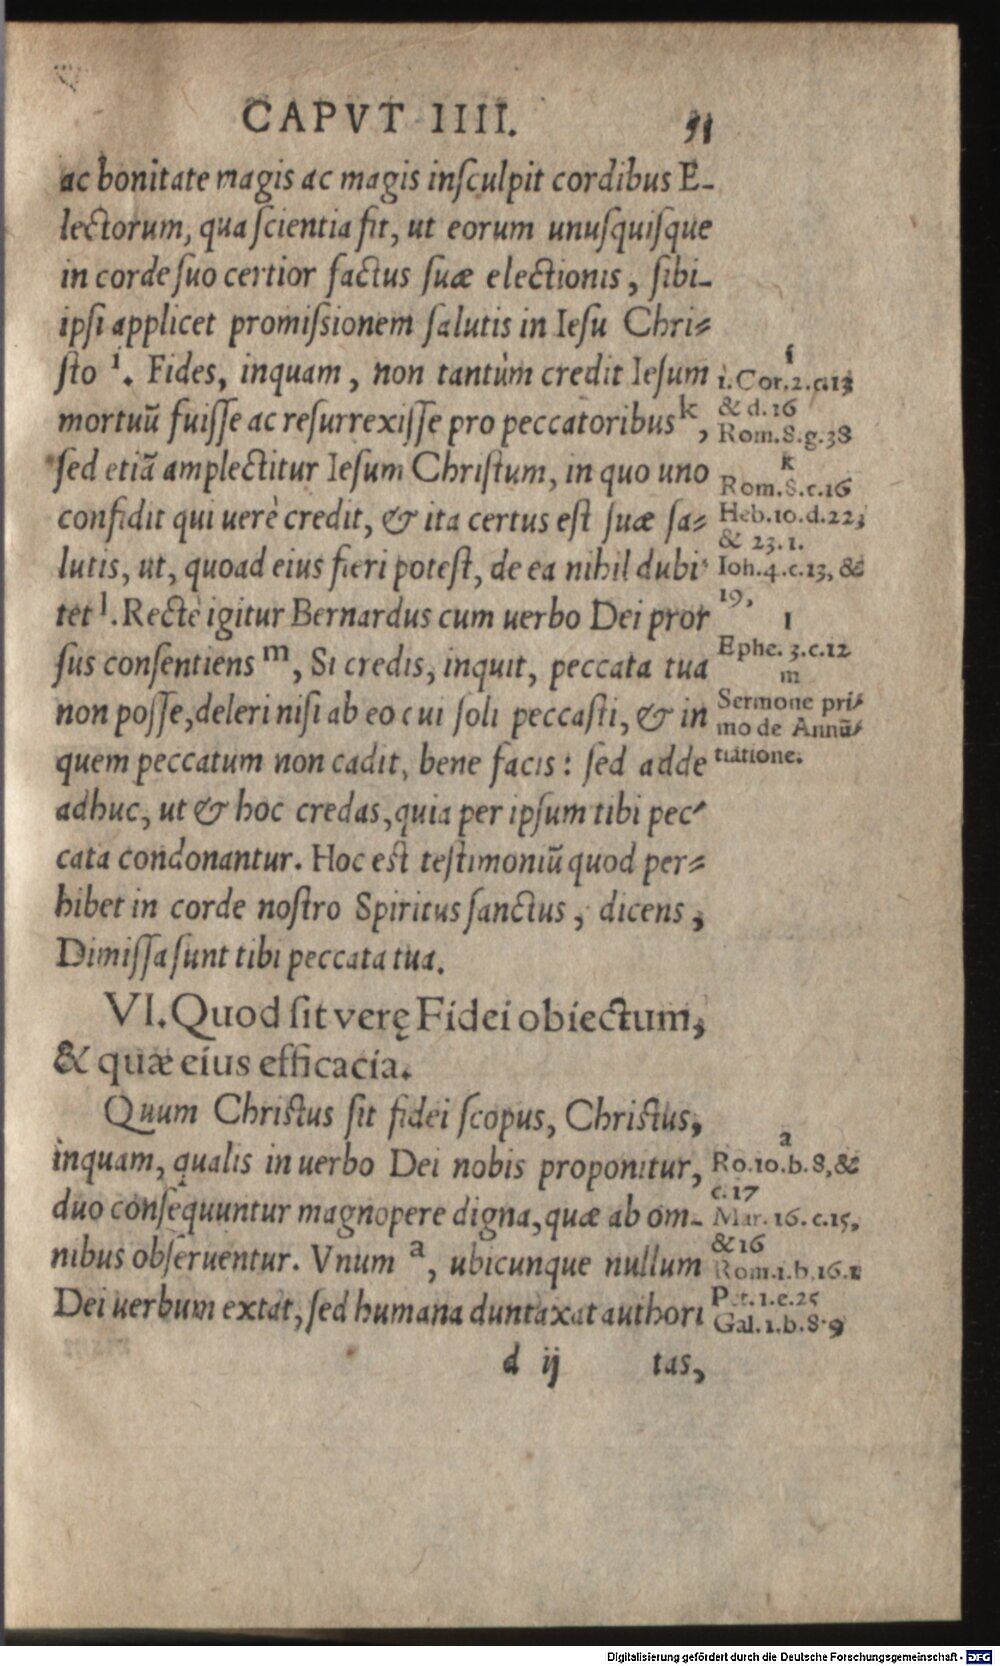 CAPVT IIII. 51
ac bonitate magis ac magis inſculpit cordibus E-
lectorum, qua ſcientia fit, ut eorum unuſquiſque
in corde ſuo certior factus ſuæ electionis, ſibi-
ipſi applicet promiſsionem ſalutis in Ieſu Chri-
ſto i. Fides, inquam, non tantùm credit Ieſum
mortuū fuiſſe ac reſurrexiſſe pro peccatoribus k,
ſed etiā amplectitur Ieſum Chriſtum, in quo uno
confidit qui uerè credit, & ita certus eſt ſuæ ſa-
lutis, ut, quoad eius fieri poteſt, de ea nihil dubi-
tet l. Rectè igitur Bernardus cum uerbo Dei pror
ſus conſentiens m, Si credis, inquit, peccata tua
non poſſe, deleri niſi ab eo cui ſoli peccaſti, & in
quem peccatum non cadit, bene facis: ſed adde
adhuc, ut & hoc credas, quia per ipſum tibi pec-
cata condonantur. Hoc eſt teſtimoniū quod per-
hibet in corde noſtro Spiritus ſanctus, dicens,
Dimiſſa ſunt tibi peccata tua.
VI. Quod ſit verę Fidei obiectum,
& quæ eius efficacia.
Quum Chriſtus ſit fidei ſcopus, Chriſtus,
inquam, qualis in uerbo Dei nobis proponitur,
duo conſequuntur magnopere digna, quæ ab om-
nibus obſeruentur. Vnum a, ubicunque nullum
Dei uerbum extat, ſed humana duntaxat authori
d ij tas,
i
1.Cor.2.c.13
& d.16
Rom.8.g.38
k
Rom.8.c.16
Heb.10.d.22,
& 23.1.
Ioh.4.c.13, &
19,
l
Ephe. 3.c.12
m
Sermone pri-
mo de Annū-
tiatione.
a
Ro.10.b.8,&
c.17
Mar. 16.c.15,
&16
Rom.1.b.16.1
Pet.1.e.25
Gal.1.b.8.9
Digitalisierung gefördert durch die Deutsche Forschungsgemeinschaft - DFG